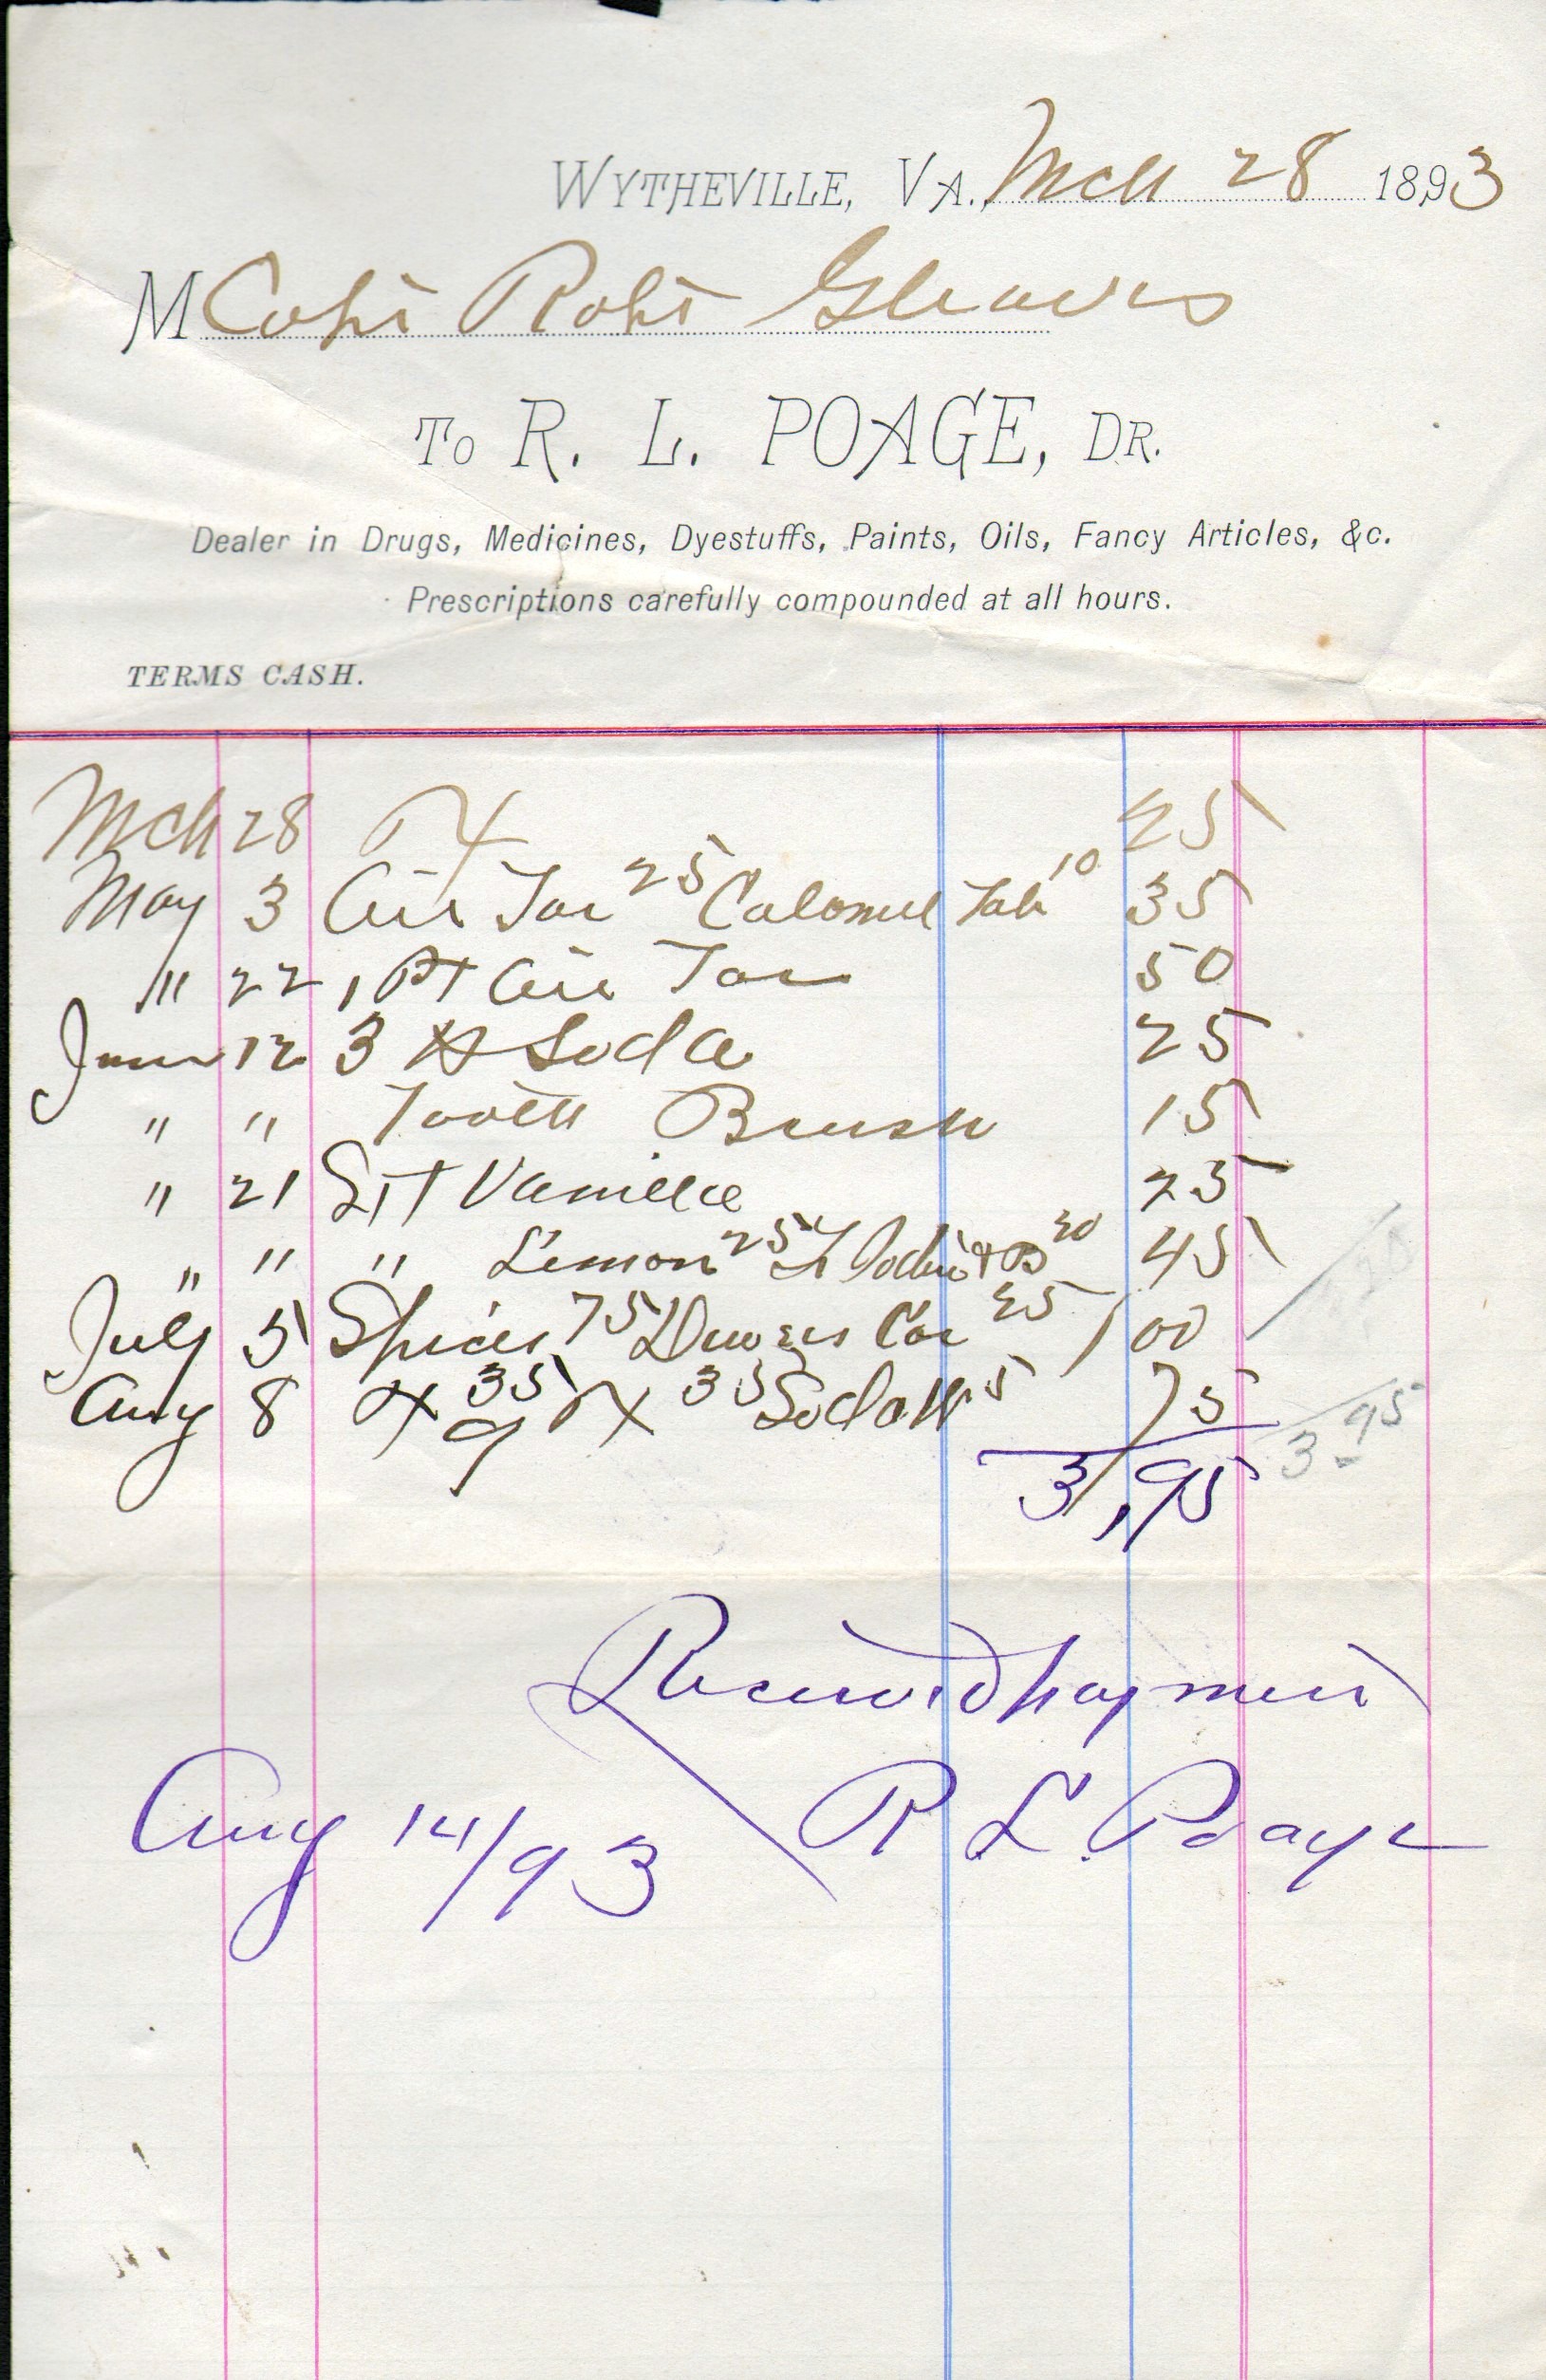 WYTHEVILLE, VA., Mch 28 1893
M Capt Robt Gleaves
To R. L. POAGE, DR.
Dealer in Drugs, Medicines, Dyestuffs, Paints, Oils, Fancy Articles, &c.
Prescriptions carefully compounded at all hours.
TERMS CASH.
Mch 28 Rx 25
May 3 Tar 25 Calomel Tab 10 35
" 22 1 Pt Tar 50
June 12 3 lb Soda 25
" " Tooth Brush 15
" 21 Ext Vanilla 25
" " " Lemon 25 20 45
July 5 Spices 75 25 1 00
Aug 8 Rx 35 Rx 35 Soda 5 75
3,95
3 95
Received payment
Aug 14/93 R. L. Poage